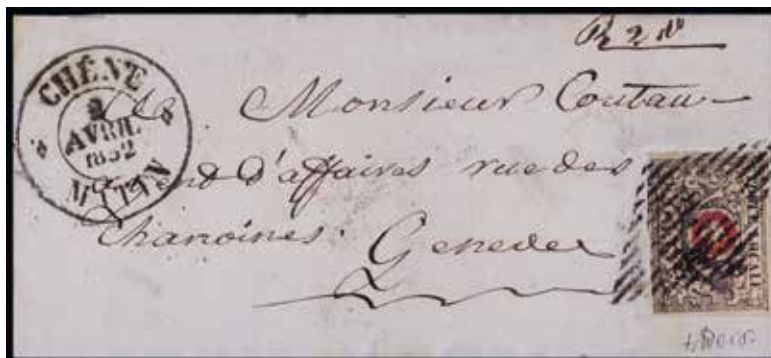 CHÊNE
2
AVRIL
1852
MATIN
Monsieur Coutau
d'affaires rue des
Chanoines. Geneve
POSTE LOCALE